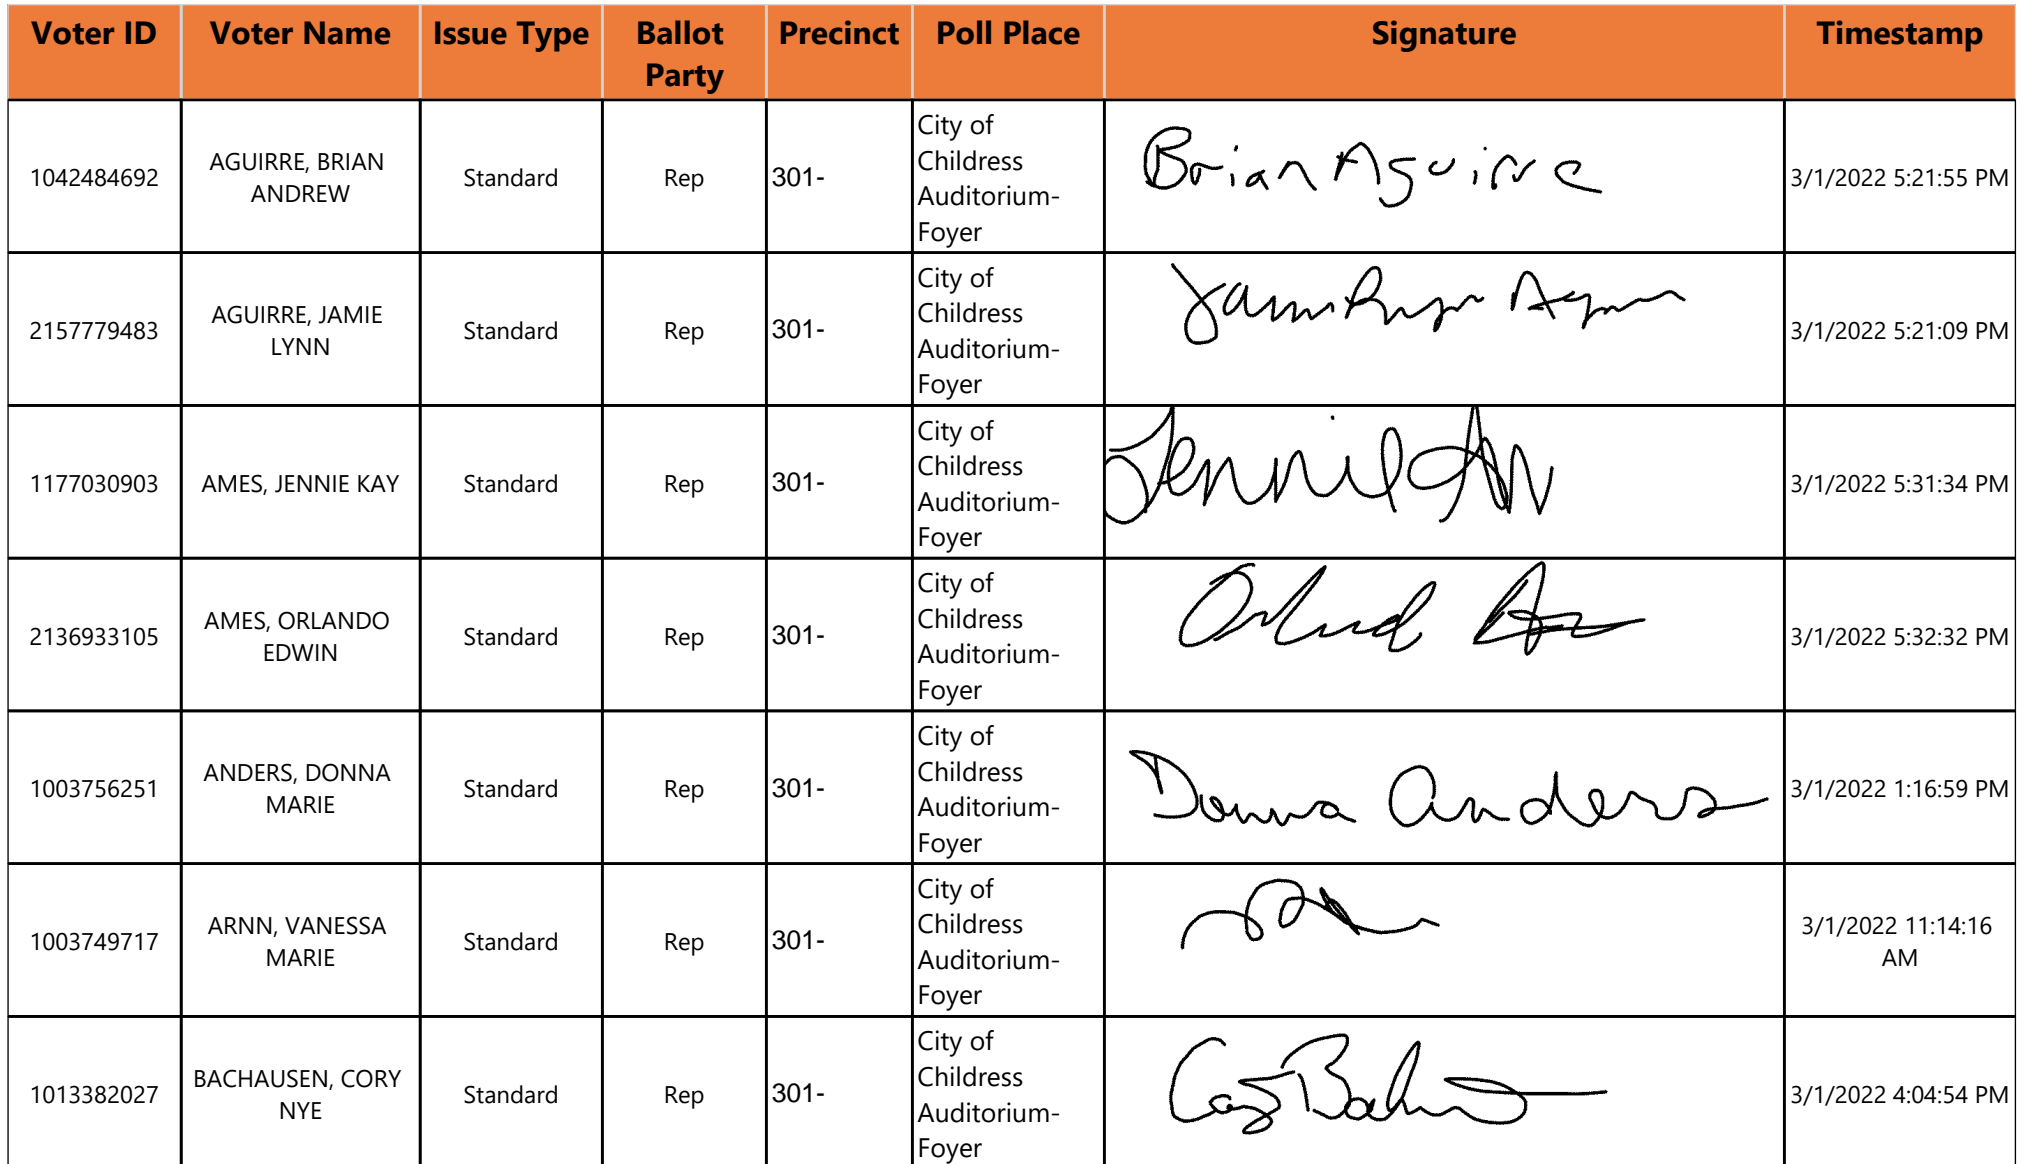 Voter ID Voter Name Issue Type Ballot Precinct Poll Place Signature Timestamp
Party
1042484692 AGUIRRE, BRIAN ANDREW Standard Rep 301- City of Childress Auditorium-Foyer Brian Aguirre 3/1/2022 5:21:55 PM
2157779483 AGUIRRE, JAMIE LYNN Standard Rep 301- City of Childress Auditorium-Foyer 3/1/2022 5:21:09 PM
1177030903 AMES, JENNIE KAY Standard Rep 301- City of Childress Auditorium-Foyer Jennie 3/1/2022 5:31:34 PM
2136933105 AMES, ORLANDO EDWIN Standard Rep 301- City of Childress Auditorium-Foyer 3/1/2022 5:32:32 PM
1003756251 ANDERS, DONNA MARIE Standard Rep 301- City of Childress Auditorium-Foyer Donna Anders 3/1/2022 1:16:59 PM
1003749717 ARNN, VANESSA MARIE Standard Rep 301- City of Childress Auditorium-Foyer 3/1/2022 11:14:16 AM
1013382027 BACHAUSEN, CORY NYE Standard Rep 301- City of Childress Auditorium-Foyer 3/1/2022 4:04:54 PM